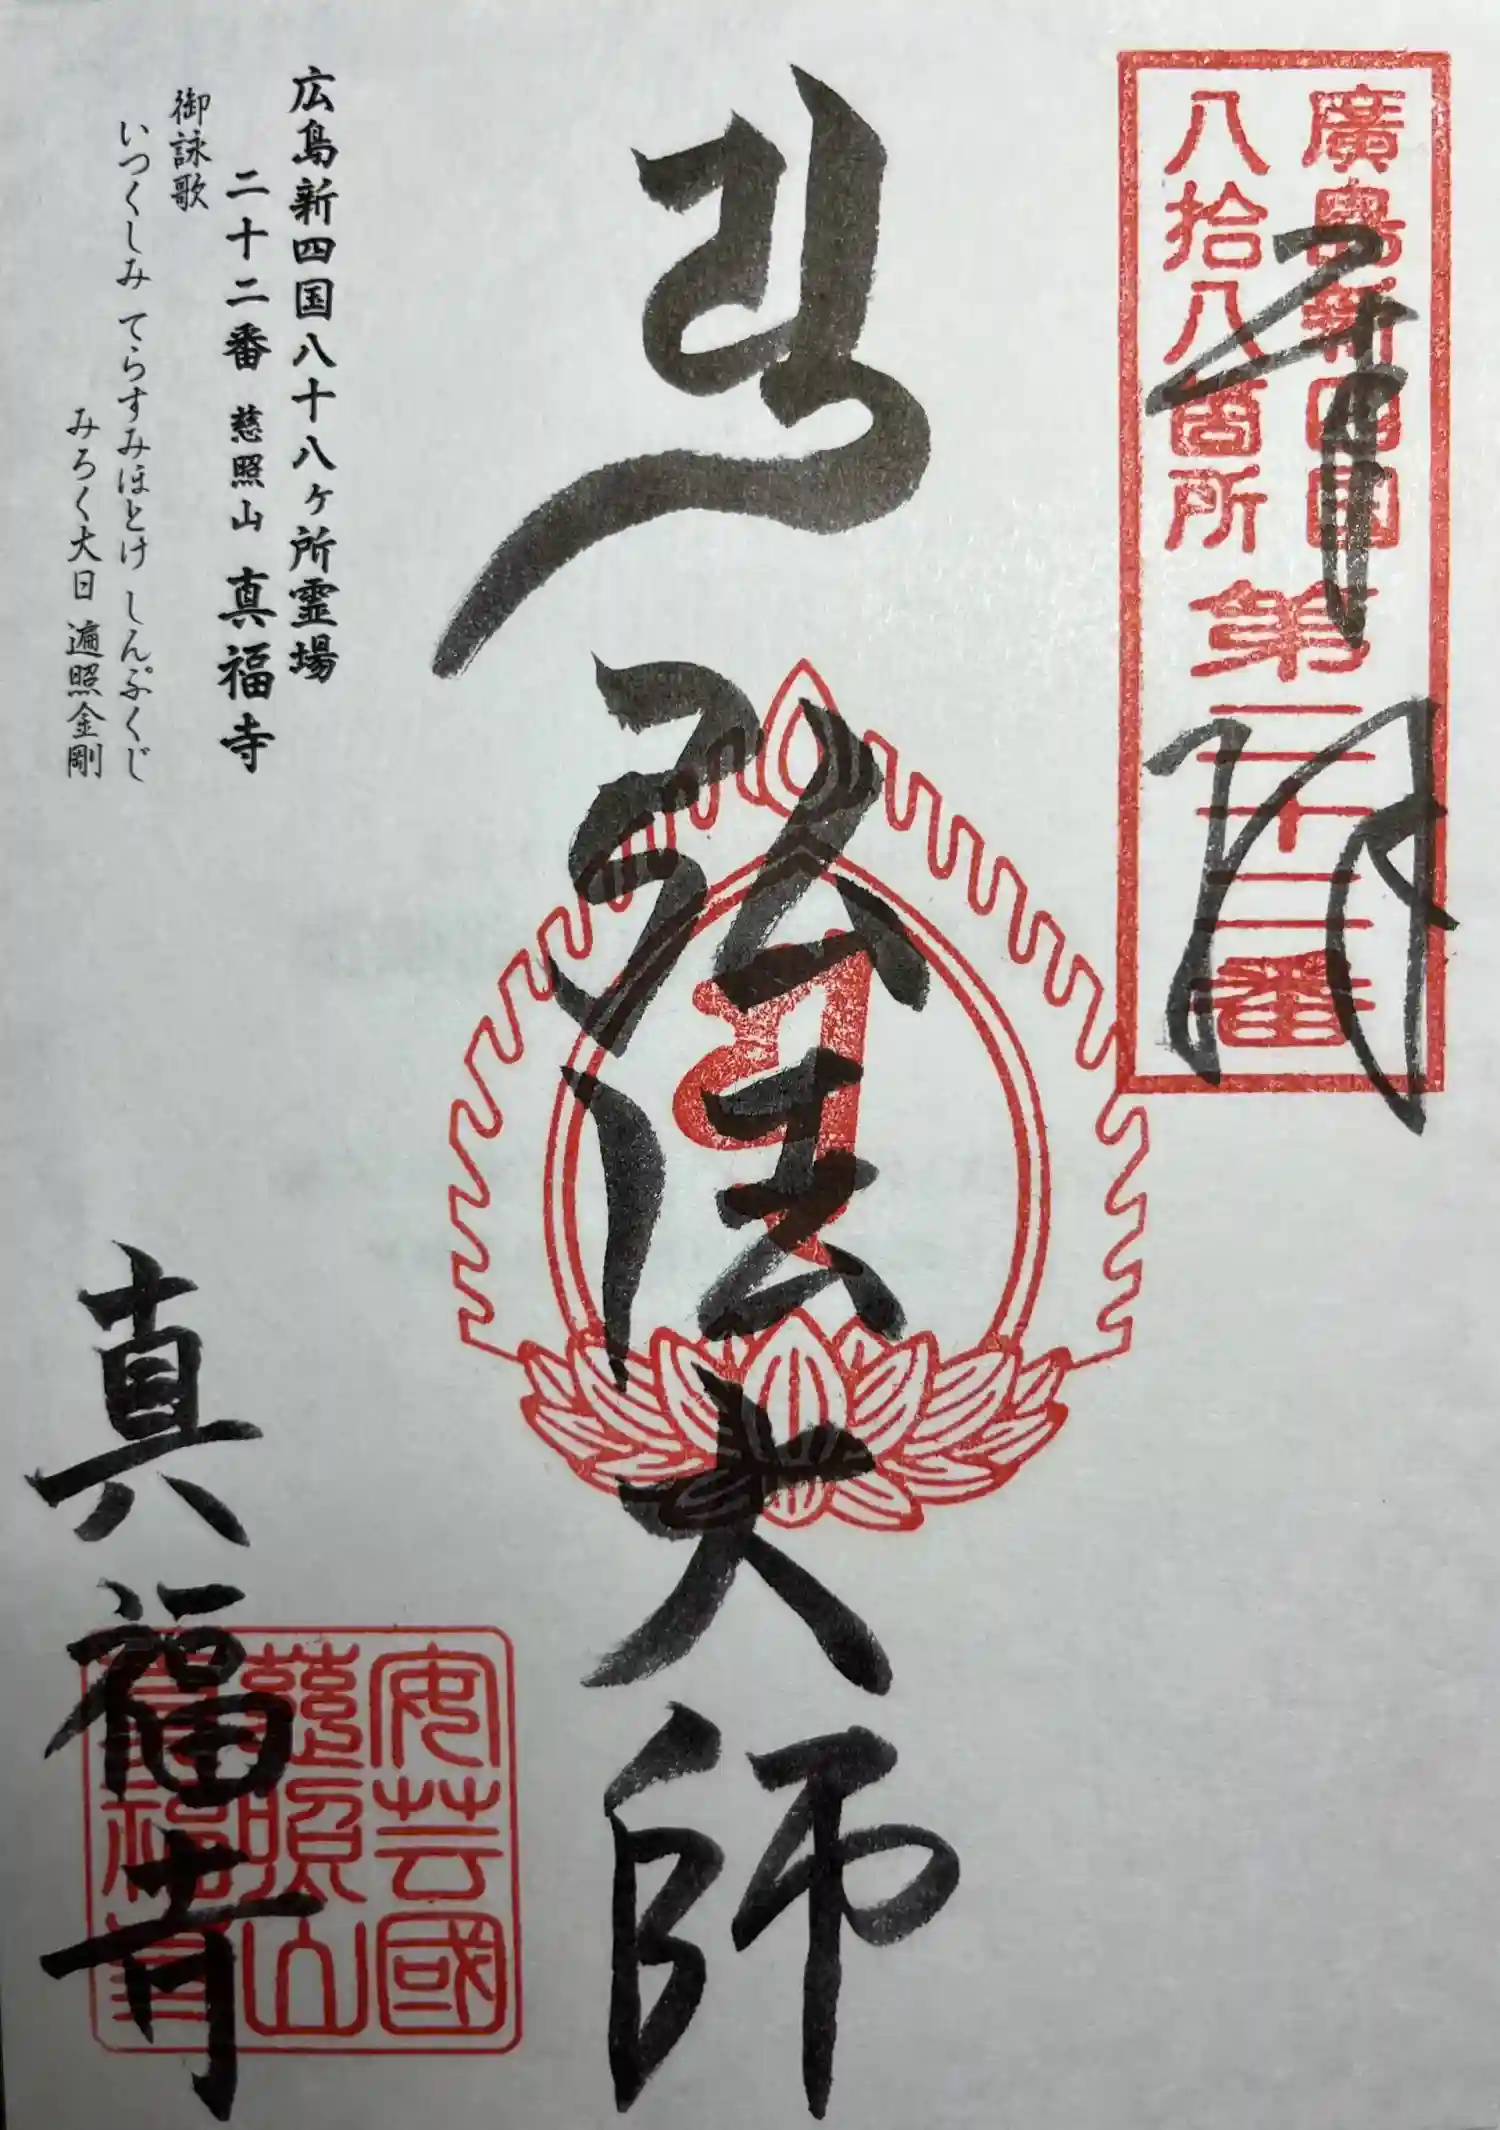 廣島新四國
八拾八箇所
第二十二番
奉拝
弘法大師
真福寺
安芸國
慈照山
広島新四国八十八ヶ所霊場
二十二番 慈照山 真福寺
御詠歌
いつくしみ てらすみほとけ しんぷくじ
みろく大日 遍照金剛